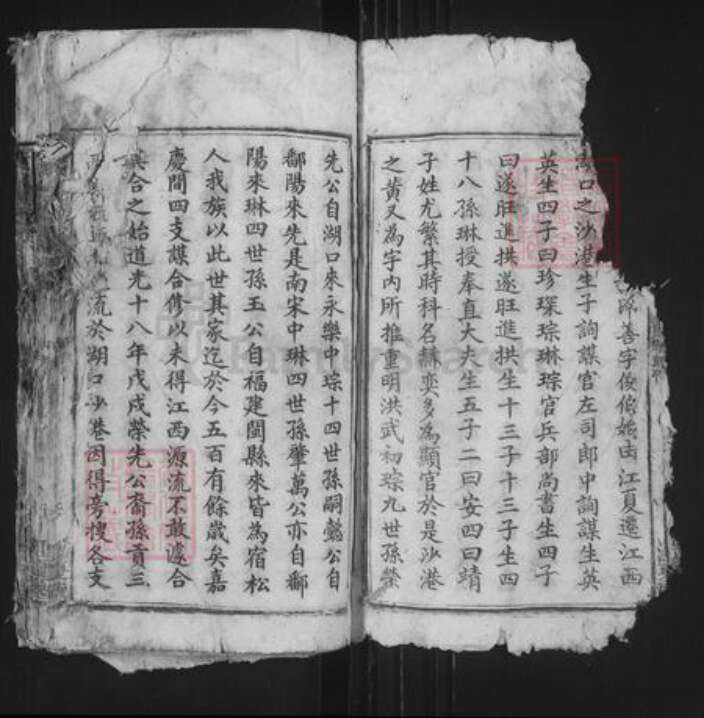 諱善字俊伯始由江夏遷江西
湖口之沙港生子詢謀官左司郎中詢謀生英
英生四子曰珍琛琮琳琮官兵部尚書生四子
曰遂旺進拱遂旺進拱生十三子十三子生四
十八孫琳授奉直大夫生五子二曰安四曰靖
子姓尤繁其時科名赫奕多為顯官於是沙港
之黄又為宇內所推重明洪武初琮九世孫榮
先公自湖口來永樂中琮十四世孫嗣懿公自
鄱陽來先是南宋中琳四世孫肇萬公亦自鄱
陽來琳四世孫玉公自福建閩縣來皆為宿松
人我族以此世其家迄於今五百有餘歲矣嘉
慶間四支謀合修以未得江西源流不敢遽合
其合之始道光十八年戊戌榮先公裔孫貢三
流於湖口沙港因得旁搜各支
FamilySearch